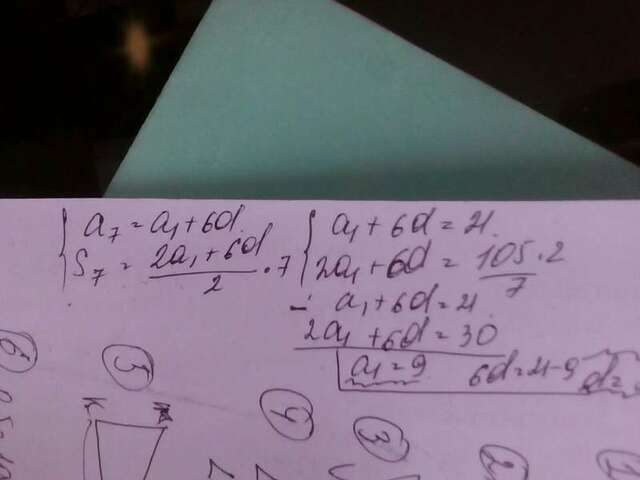 a₇ = a₁ + 6d
S₇ = (2a₁ + 6d)/2 · 7
a₁ + 6d = 21.
2a₁ + 6d = (105 · 2)/7
− a₁ + 6d = 21
2a₁ + 6d = 30
a₁ = 9 6d = 21 - 9 d =
5
K
6
4
3
2
1